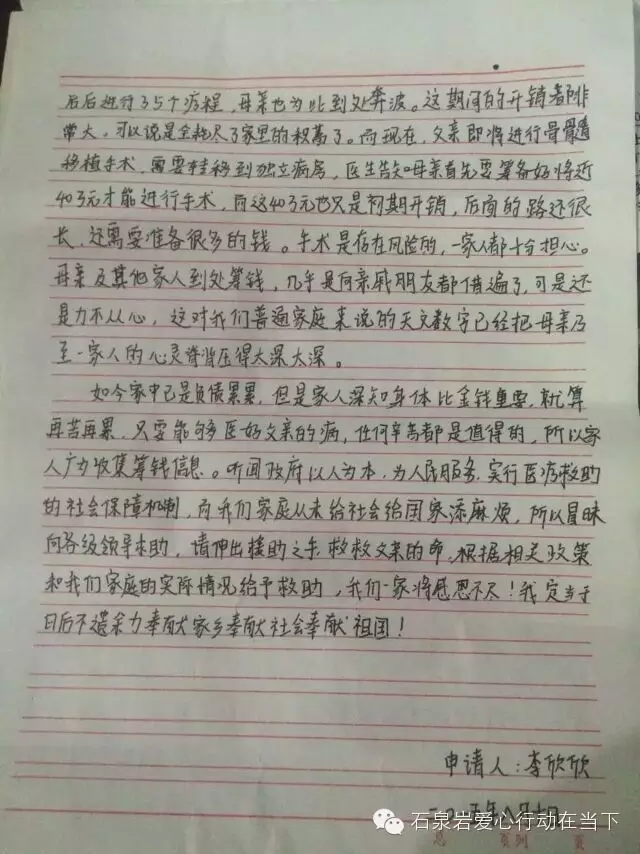 后后进行了35个疗程，母亲也为此到处奔波。这期间的开销都非
常大，可以说是全耗尽了家里的积蓄了。而现在，父亲即将进行骨髓
移植手术，需要转移到独立病房，医生告知母亲首先要筹备好将近
40万元才能进行手术，而这40万元也只是初期开销，后面的路还很
长，还需要准备很多的钱。手术是存在风险的，一家人都十分担心。
母亲及其他家人到处筹钱，几乎是向亲戚朋友都借遍了，可是还
是力不从心，这对我们普通家庭来说的天文数字已经把母亲乃
至一家人的心灵脊背压得太深太深。
如今家中已是负债累累，但是家人深知身体比金钱重要，就算
再苦再累，只要能够医好父亲的病，任何辛苦都是值得的，所以家
人广为收集筹钱信息。听闻政府以人为本，为人民服务，实行医疗救助
的社会保障机制，而我们家庭从未给社会给国家添麻烦，所以冒昧
向各级领导求助，请伸出援助之手，救救父亲的命，根据相关政策
和我们家庭的实际情况给予救助，我们一家将感恩不尽！我定当于
日后不遗余力奉献家乡奉献社会奉献祖国！
申请人：李欣欣
二〇一五年八月
石泉岩爱心行动在当下
页